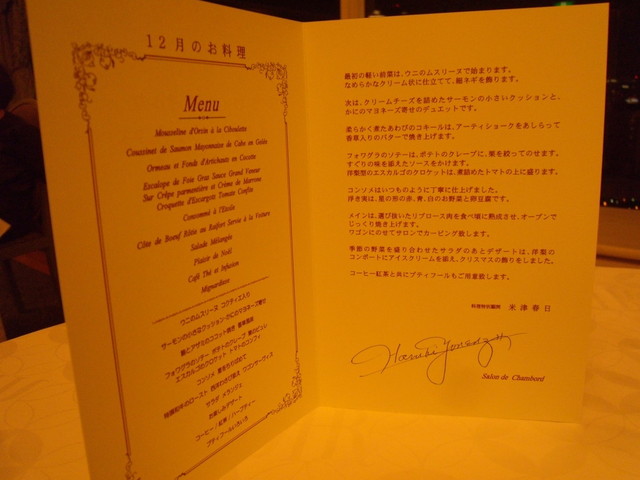 12月のお料理
Menu
Mousseline d'Orsin à la Ciboulette
Coussinet de Saumon Mayonnaise de Cabe en Gelée
Ormeau et Fonds d'Artichauts en Cocotte
Escalope de Foie Gras Sauce Grand Veneur
Sur Crêpe parmentière et Crème de Marrons
Croquette d'Escargots Tomate Confite
Consommé à l'Etoile
Côte de Boeuf Rôtie au Raifort Servie à la Voiture
Salade Mélangée
Plaisir de Noël
Café Thé et Infusion
Mignardises
ウニのムスリーヌ コクティエ入り
サーモンの小さなクッション かにのマヨネーズ寄せ
フォワグラのソテー ポテトのクレープ 栗のピュレ
エスカルゴのクロケット トマトのコンフィ
コンソメ 星をちりばめて
サラダ メランジェ
お楽しみデザート
コーヒー/紅茶/ハーブティー
プティフールいろいろ
最初の軽い前菜は、ウニのムスリーヌで始まります。
なめらかなクリーム状に仕立てて、細ネギを飾ります。
次は、クリームチーズを詰めたサーモンの小さいクッションと、
かにのマヨネーズ寄せのデュエットです。
柔らかく煮たあわびのコキールは、アーティショークをあしらって
香草入りのバターで焼き上げます。
フォワグラのソテーは、ポテトのクレープに、栗を絞ってのせます。
すぐりの味を添えたソースをかけます。
洋梨型のエスカルゴのクロケットは、煮詰めたトマトの上に盛ります。
コンソメはいつものように丁寧に仕上げました。
浮き実は、星の形の赤、青、白のお野菜と卵豆腐です。
メインは、選び抜いたリブロース肉を食べ頃に熟成させ、オーブンで
じっくり焼き上げます。
ワゴンにのせてサロンでカービング致します。
季節の野菜を盛り合わせたサラダのあとデザートは、洋梨の
コンポートにアイスクリームを添え、クリスマスの飾りをしました。
コーヒー紅茶と共にプティフールもご用意致します。
料理特別顧問 米津春日
Haruhi Yonezu
Salon de Chambord